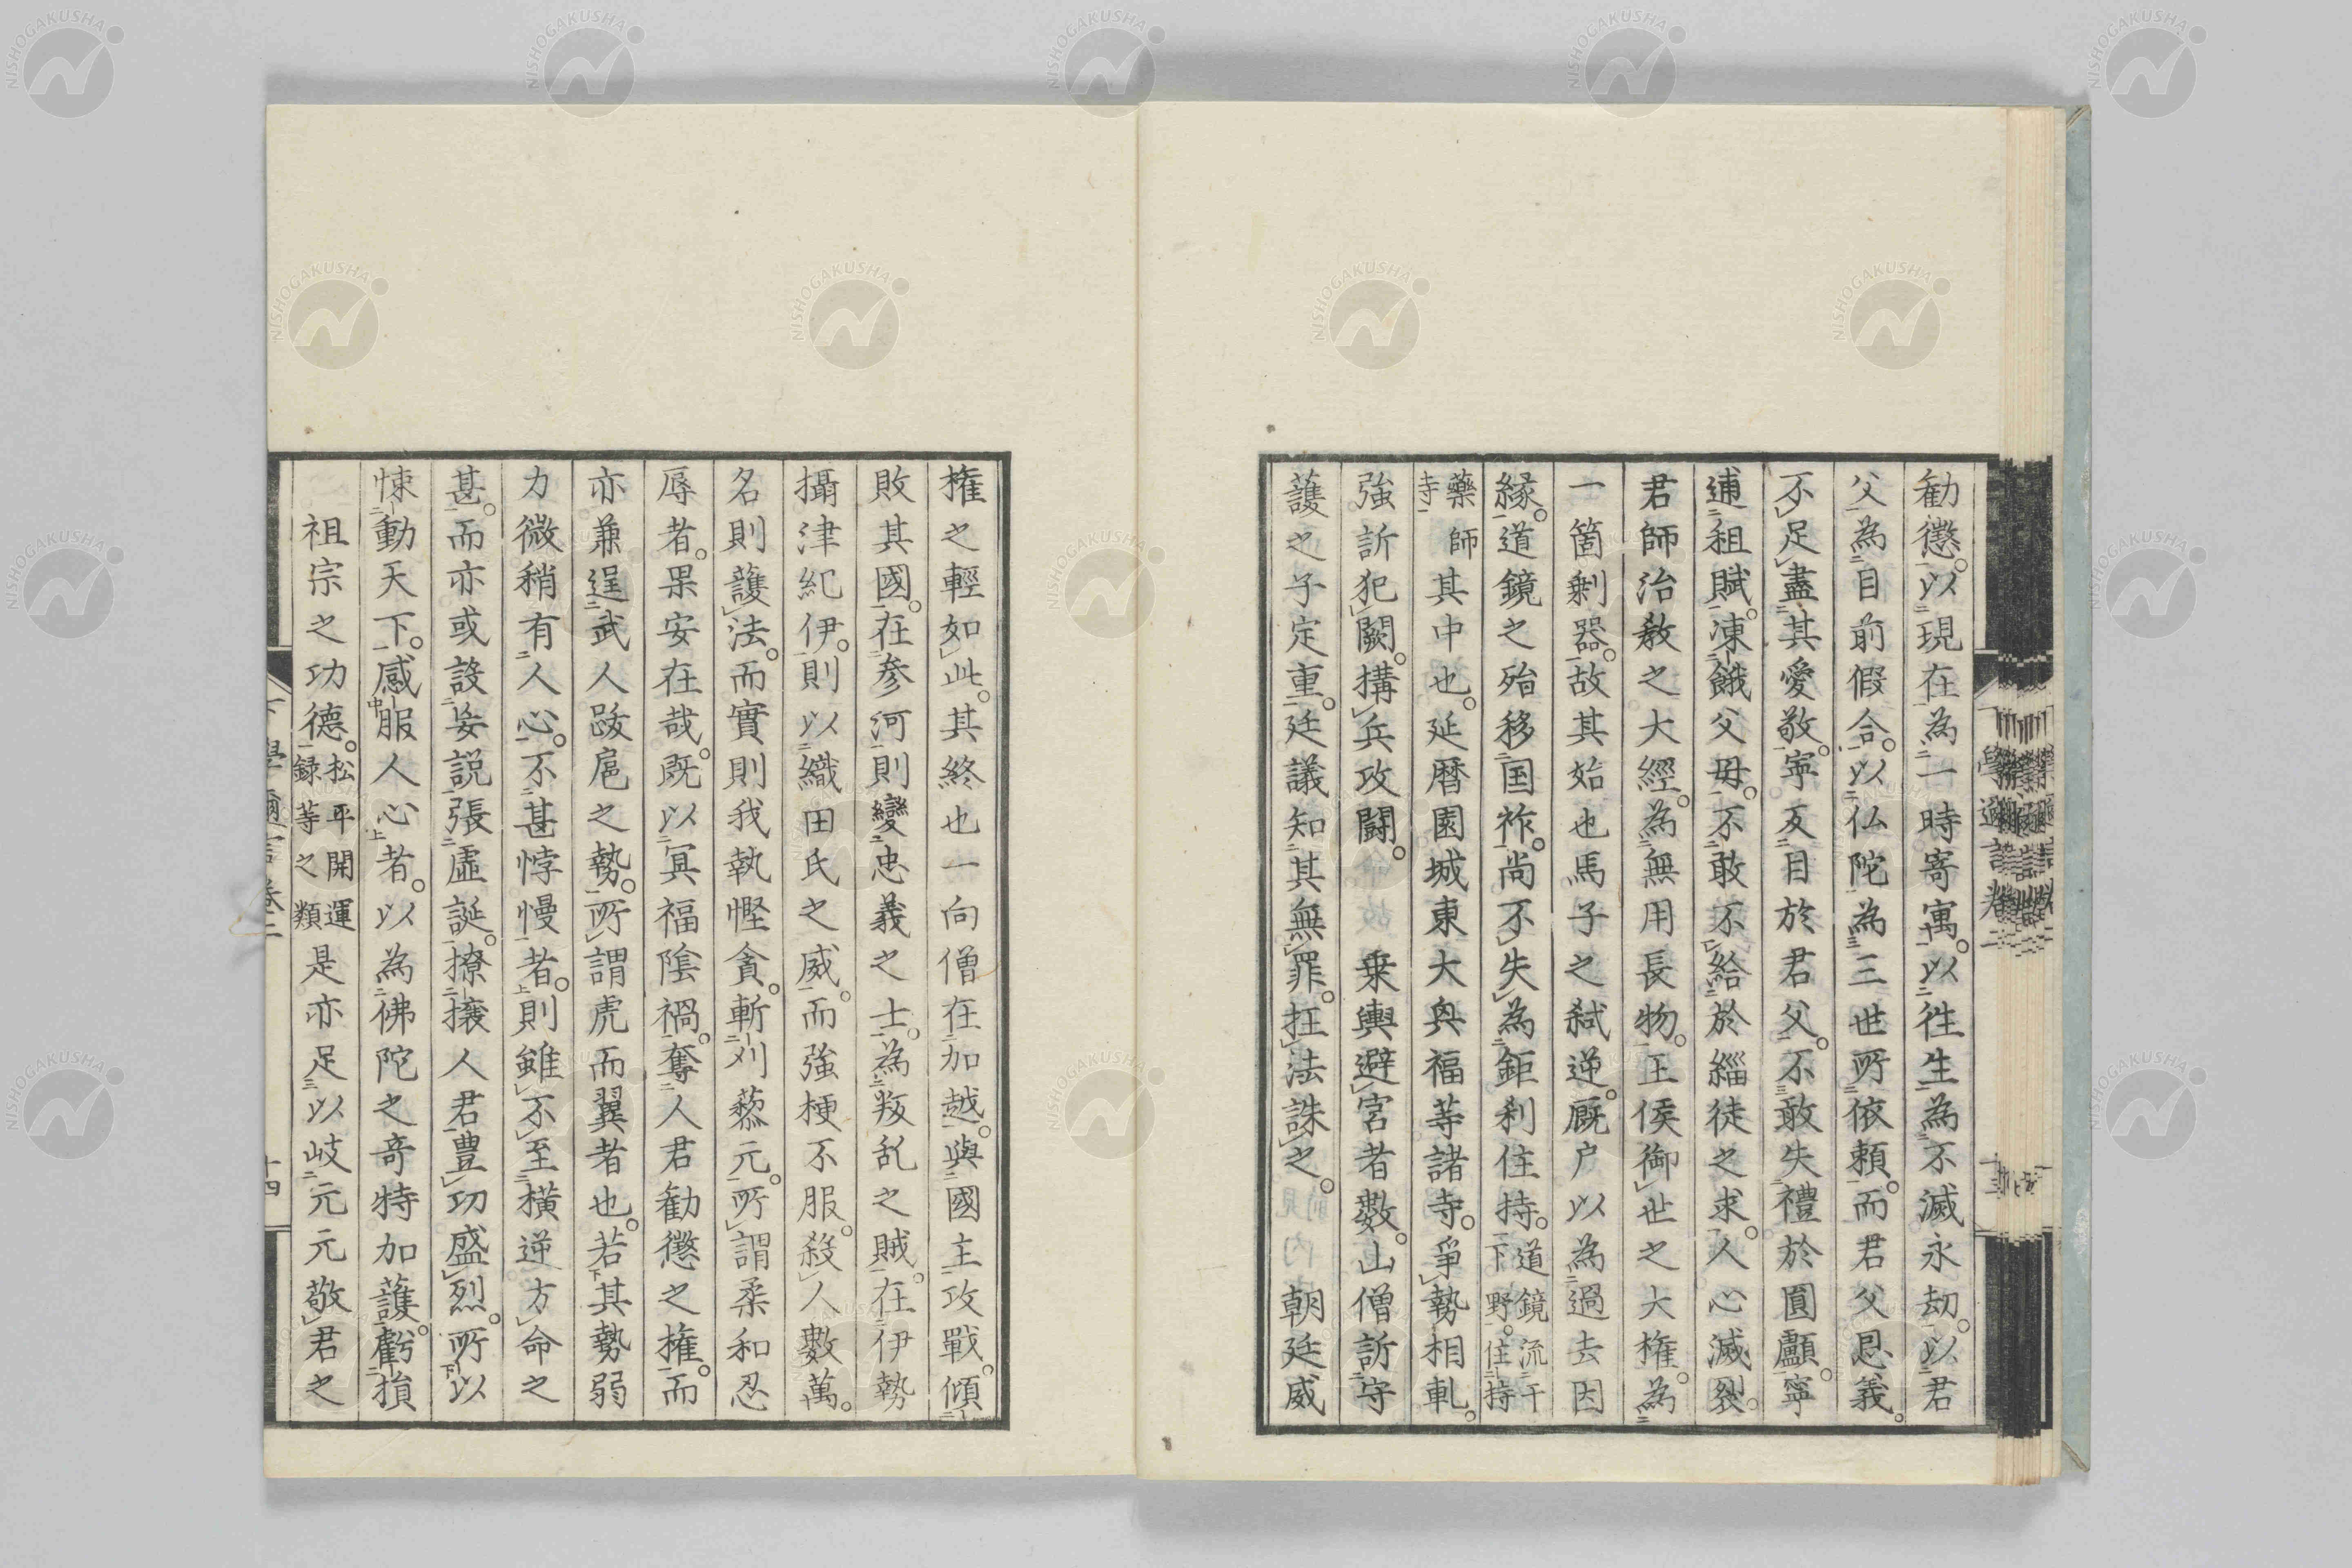 勧懲。以現在為一時寄寓。以徃生為不滅永劫。以君
父為目前假合。以仏陀為三世所依頼。而君父恩義。
不足盡其愛敬。寧反目於君父。不敢失禮於圓顱。寧
逋租賦。凍餓父母。不敢不給於緇徒之求。人心滅裂。
君師治教之大經。為無用長物。王侯御世之大権。為
一箇剰器。故其始也馬子之弑逆。厩户以為過去因
縁。道鏡之殆移国祚。尚不失為鉅刹住持。道鏡流下野。住持
藥師寺其中也。延暦園城東大興福等諸寺。爭勢相軋。
強訴犯闕。搆兵攻鬪。乗輿避宮者數。山僧訴守
護之子定重。廷議知其無罪。抂法誅之。朝廷威
権之輕如此。其終也一向僧在加越。與國主攻戰。傾
敗其國。在参河則變忠義之士。為叛乱之賊。在伊勢
攝津紀伊。則以織田氏之威。而強梗不服。殺人數萬。
名則護法。而實則我執慳貪。斬刈藜元。所謂柔和忍
辱者。果安在哉。既以冥福陰禍。奪人君勧懲之権。而
亦兼逞武人跋扈之勢。所謂虎而翼者也。若其勢弱
力微稍有人心。不甚悖慢者。則雖不至横逆方命之
甚。而亦或設妄説張虚誕。撩攘人君豊功盛烈。所以
悚動天下。感服人心者。以為佛陀之竒特加護。虧損
祖宗之功德。松平開運録等之類是亦足以岐元元敬君之
下學邇言卷二
十四
NISHOGAKUSHA